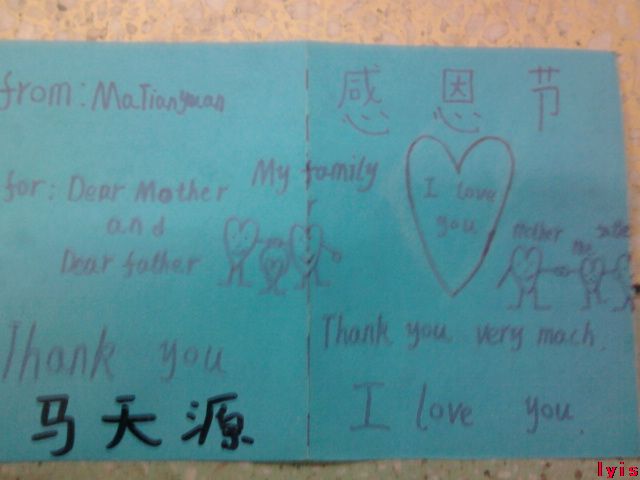 from: MaTianyuan
for: Dear Mother
and
Dear father
My family
Thank you
马天源
感恩节
I love
you
mother
me
Thank you very mach.
I love you.
lyis